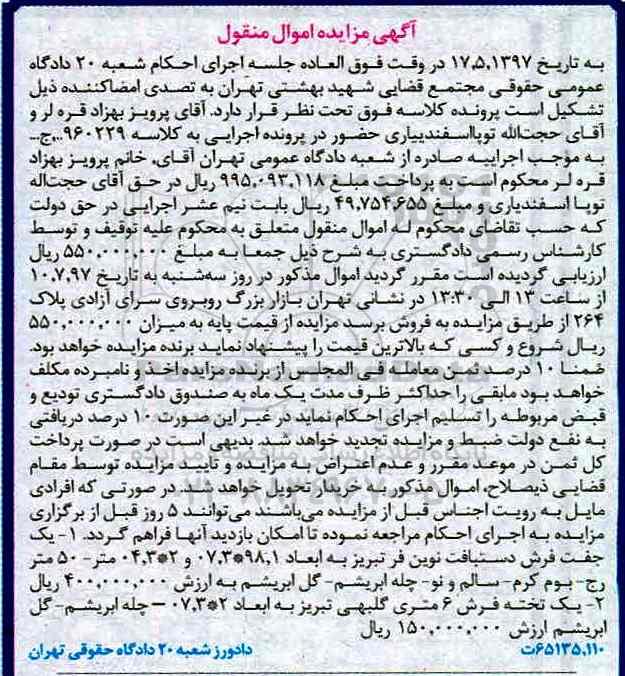 آگهی مزایده اموال منقول
به تاریخ ۱۷,۵,۱۳۹۷ در وقت فوق العاده جلسه اجرای احکام شعبه ۲۰ دادگاه
عمومی حقوقی مجتمع قضایی شهید بهشتی تهران به تصدی امضاکننده ذیل
تشکیل است پرونده کلاسه فوق تحت نظر قرار دارد. آقای پرویز بهزاد قره لر و
آقای حجت‌الله توپااسفندییاری حضور در پرونده اجرایی به کلاسه ۹۶۰۲۲۹..ج..
به موجب اجراییه صادره از شعبه دادگاه عمومی تهران آقای، خانم پرویز بهزاد
قره لر محکوم است به پرداخت مبلغ ۹۹۵,۰۹۳,۱۱۸ ریال در حق آقای حجت‌اله
توپا اسفندیاری و مبلغ ۴۹,۷۵۴,۶۵۵ ریال بابت نیم عشر اجرایی در حق دولت
که حسب تقاضای محکوم له اموال منقول متعلق به محکوم علیه توقیف و توسط
کارشناس رسمی دادگستری به شرح ذیل جمعا به مبلغ ۵۵۰,۰۰۰,۰۰۰ ریال
ارزیابی گردیده است مقرر گردید اموال مذکور در روز سه‌شنبه به تاریخ ۱۰,۷,۹۷
از ساعت ۱۳ الی ۱۳:۳۰ در نشانی تهران بازار بزرگ روبروی سرای آزادی پلاک
۲۶۴ از طریق مزایده به فروش برسد مزایده از قیمت پایه به میزان ۵۵۰,۰۰۰,۰۰۰
ریال شروع و کسی که بالاترین قیمت را پیشنهاد نماید برنده مزایده خواهد بود.
ضمنا ۱۰ درصد ثمن معامله فی المجلس از برنده مزایده اخذ و نامبرده مکلف
خواهد بود مابقی را حداکثر ظرف مدت یک ماه به صندوق دادگستری تودیع و
قبض مربوطه را تسلیم اجرای احکام نماید در غیر این صورت ۱۰ درصد دریافتی
به نفع دولت ضبط و مزایده تجدید خواهد شد. بدیهی است در صورت پرداخت
کل ثمن در موعد مقرر و عدم اعتراض به مزایده و تایید مزایده توسط مقام
قضایی ذیصلاح، اموال مذکور به خریدار تحویل خواهد شد. در صورتی که افرادی
مایل به رویت اجناس قبل از مزایده می‌باشند می‌توانند ۵ روز قبل از برگزاری
مزایده به اجرای احکام مراجعه نموده تا امکان بازدید آنها فراهم گردد. ۱- یک
جفت فرش دستبافت نوین فر تبریز به ابعاد ۹۸,۱*۰۷,۳ و ۲*۰۴,۳ متر- ۵۰ متر
رج- بوم کرم- سالم و نو- چله ابریشم- گل ابریشم به ارزش ۴۰۰,۰۰۰,۰۰۰ ریال
۲- یک تخته فرش ۶ متری گلبهی تبریز به ابعاد ۲*۰۷,۳ – چله ابریشم- گل
ابریشم ارزش ۱۵۰,۰۰۰,۰۰۰ ریال
۶۵۱۳۵,۱۱۰ت دادورز شعبه ۲۰ دادگاه حقوقی تهران